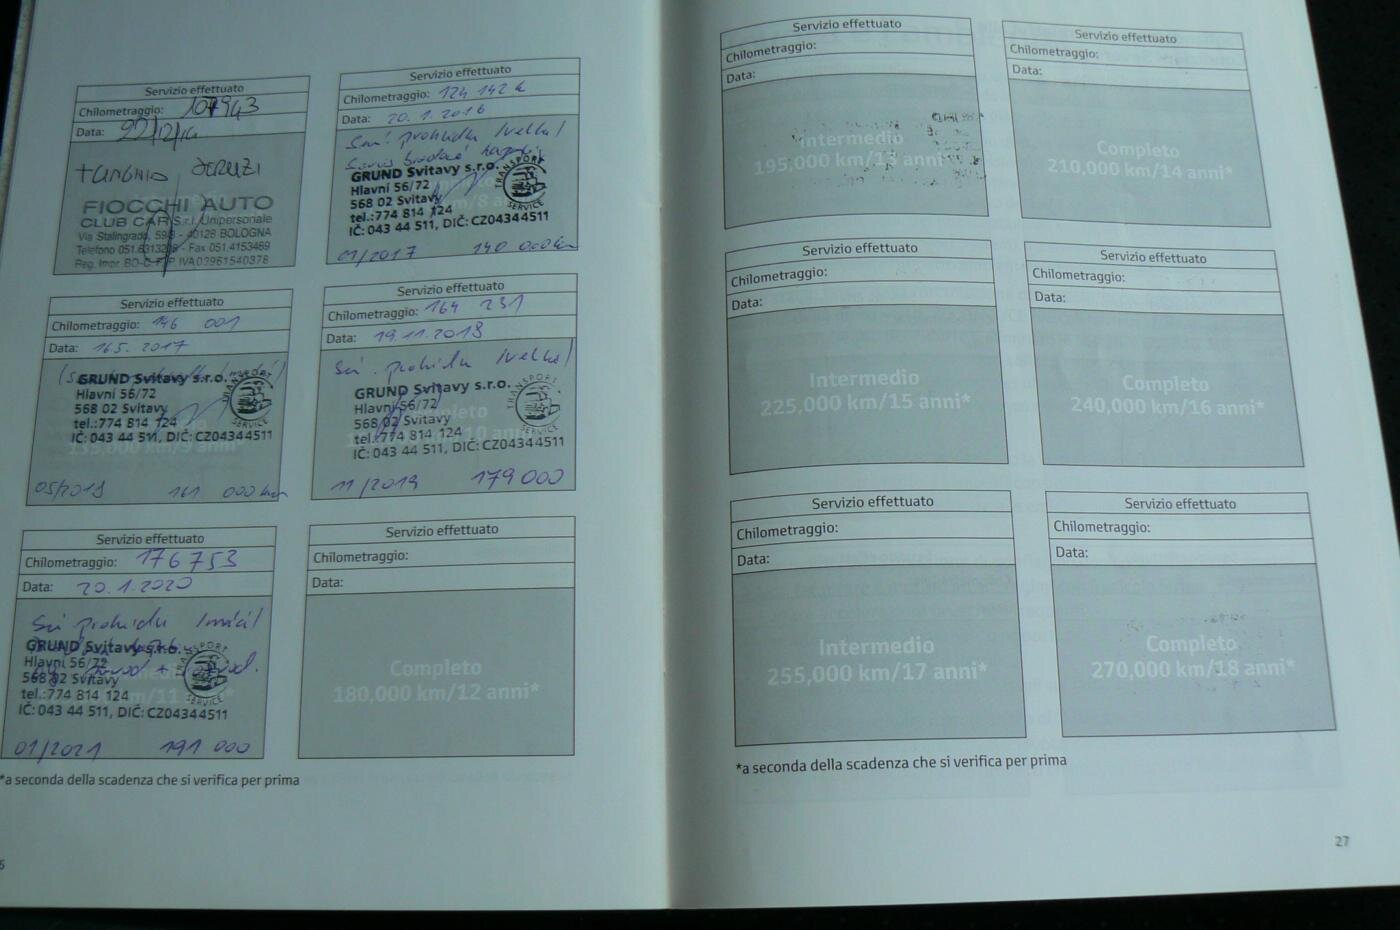 Servizio effettuato
Chilometraggio: 107943
Data: 22/12/14
FIOCCHI AUTO
CLUB CAR S.r.l. Unipersonale
Via Stalingrado, 40128 BOLOGNA
Telefono - Fax 051.4153469
Reg. Impr. P.IVA 03961540378
Servizio effettuato
Chilometraggio: 124 142 k
Data: 20.1.2016
prohídka /velká/
GRUND Svitavy s.r.o.
Hlavní 56/72
568 02 Svitavy
tel.:774 814 124
IČ: 043 44 511, DIČ: CZ04344511
TRANSPORT
SERVICE
01/2017 140 000 km
Servizio effettuato
Chilometraggio: 146 001
Data: 16.5.2017
GRUND Svitavy s.r.o.
Hlavní 56/72
568 02 Svitavy
tel.:774 814 124
IČ: 043 44 511, DIČ: CZ04344511
TRANSPORT
SERVICE
05/2018 161 000 km
Servizio effettuato
Chilometraggio: 164 231
Data: 19.11.2018
prohídka /velká/
GRUND Svitavy s.r.o.
Hlavní 56/72
568 02 Svitavy
tel.:774 814 124
IČ: 043 44 511, DIČ: CZ04344511
TRANSPORT
SERVICE
11/2019 179 000
Servizio effettuato
Chilometraggio: 176753
Data: 20.1.2020
prohídka /malá/
GRUND Svitavy s.r.o.
Hlavní 56/72
568 02 Svitavy
tel.:774 814 124
IČ: 043 44 511, DIČ: CZ04344511
TRANSPORT
SERVICE
01/2021 191 000
Servizio effettuato
Chilometraggio:
Data:
Completo
180,000 km/12 anni*
*a seconda della scadenza che si verifica per prima
Servizio effettuato
Chilometraggio:
Data:
Intermedio
195,000 km/13 anni*
Servizio effettuato
Chilometraggio:
Data:
Completo
210,000 km/14 anni*
Servizio effettuato
Chilometraggio:
Data:
Intermedio
225,000 km/15 anni*
Servizio effettuato
Chilometraggio:
Data:
Completo
240,000 km/16 anni*
Servizio effettuato
Chilometraggio:
Data:
Intermedio
255,000 km/17 anni*
Servizio effettuato
Chilometraggio:
Data:
Completo
270,000 km/18 anni*
*a seconda della scadenza che si verifica per prima
27